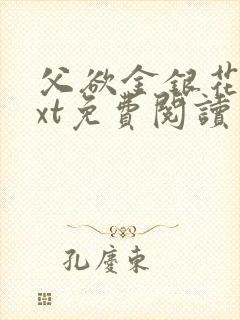 父欲金銀花
xt免費閱讀
孔慶東